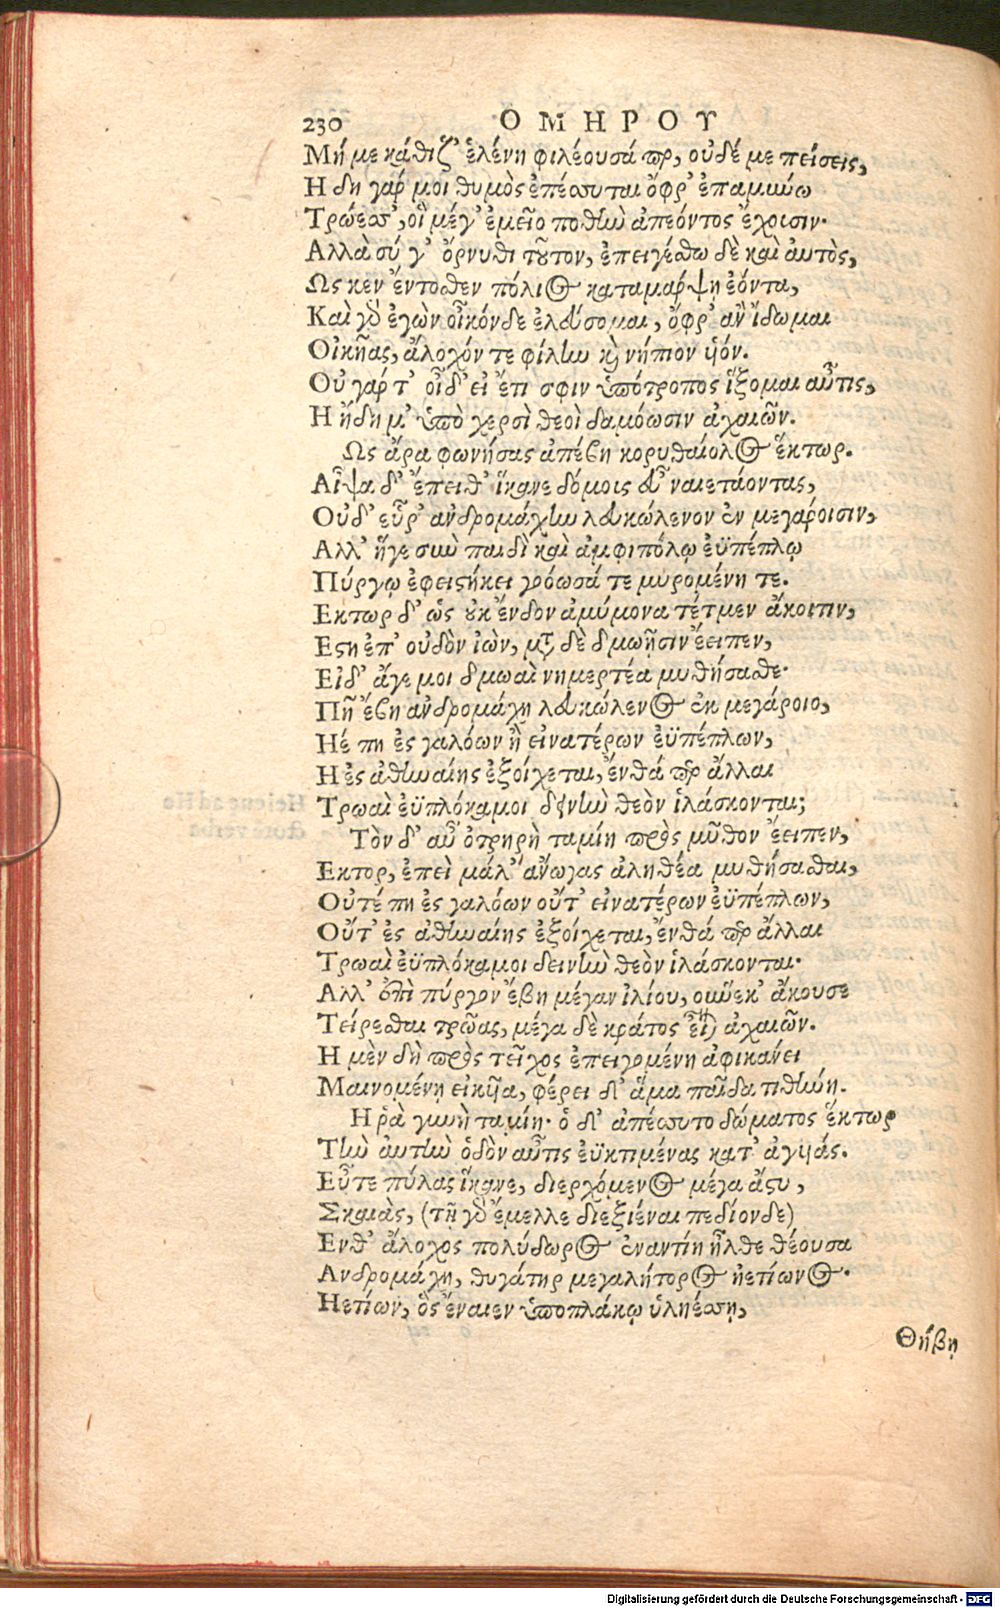 230 ΟΜΗΡΟΥ
Μή με κάθιζ' ἑλένη φιλέουσά περ, οὐδέ με πείσεις,
Η δη γάρ μοι θυμὸς ἐπέσσυται ὄφρ' ἐπαμύνω
Τρώεσσ', οἳ μέγ' ἐμεῖο ποθὴν ἀπεόντος ἔχουσιν·
Αλλὰ σύ γ' ὄρνυθι τοῦτον, ἐπειγέσθω δὲ καὶ ἀυτὸς,
Ως κεν ἔντοσθεν πόλιος καταμάρψη ἐόντα,
Καὶ γὸ ἐγὼν οἶκόνδε ἐλεύσομαι, ὄφρ' ἂν ἴδωμαι
Οἰκῆας, ἄλοχόν τε φίλην κὴ νήπιον υἱόν.
Οὐ γάρ τ' οἶδ' εἰ ἔτι σφιν ὑπότροπος ἵξομαι αὖτις,
Η ἤδη μ' ὑπὸ χερσὶ θεοὶ δαμόωσιν ἀχαιῶν.
Ως ἄρα φωνήσας ἀπέβη κορυθαίολος ἕκτωρ.
Αἶψα δ' ἔπειθ' ἵκανε δόμοις εὖ ναιετάοντας,
Οὐδ' εὗρ' ἀνδρομάχην λευκώλενον ἐν μεγάροισιν,
Αλλ' ἥγε σὺν παιδὶ καὶ ἀμφιπόλῳ ἐϋπέπλῳ
Πύργῳ ἐφεισήκει γοόωσά τε μυρομένη τε.
Εκτωρ δ' ὡς οὐκ ἔνδον ἀμύμονα τέτμεν ἄκοιτιν,
Εςη ἐπ' οὐδὸν ἰὼν, μετὰ δὲ δμωῇσιν ἔειπεν,
Εἰδ' ἄγε μοι δμωαὶ νημερτέα μυθήσασθε·
Πῆ ἔβη ἀνδρομάχη λευκώλενος ἐκ μεγάροιο,
Ηέ πη ἐς γαλόων ἢ εἰνατέρων ἐϋπέπλων,
Η ἐς ἀθηναίης ἐξοίχεται, ἔνθά περ ἄλλαι
Τρωαὶ ἐϋπλόκαμοι δεινὴν θεὸν ἱλάσκονται;
Τὸν δ' αὖ ὀτρηρὴ ταμίη πρὸς μῦθον ἔειπεν,
Εκτορ, ἐπεὶ μάλ' ἄνωγας ἀληθέα μυθήσασθαι,
Οὔτέ πη ἐς γαλόων οὔτ' εἰνατέρων ἐϋπέπλων,
Οὔτ' ἐς ἀθηναίης ἐξοίχεται, ἔνθά περ ἄλλαι
Τρωαὶ ἐϋπλόκαμοι δεινὴν θεὸν ἱλάσκονται·
Αλλ' ἐπὶ πύργον ἔβη μέγαν ἰλίου, οὕνεκ' ἄκουσε
Τείρεσθαι τρῶας, μέγα δὲ κράτος εἶναι ἀχαιῶν.
Η μὲν δὴ πρὸς τεῖχος ἐπειγομένη ἀφικάνει
Μαινομένῃ εἰκυῖα, φέρει δ' ἅμα παῖδα τιθήνη.
Η ῥὰ γυνὴ ταμίη· ὁ δ' ἀπέσσυτο δώματος ἕκτωρ
Τὴν ἀυτὴν ὁδὸν αὖτις ἐϋκτιμένας κατ' ἀγυιάς.
Εὖτε πύλας ἵκανε, διερχόμενος μέγα ἄςυ,
Σκαιὰς, (τῇ γὸ ἔμελλε διεξιέναι πεδίονδε)
Ενθ' ἄλοχος πολύδωρος ἐναντίη ἦλθε θέουσα
Ανδρομάχη, θυγάτηρ μεγαλήτορος ἠετίωνος·
Ηετίων, ὃς ἔναιεν ὑποπλάκῳ ὑληέσσῃ,
Θήβῃ
Digitalisierung gefördert durch die Deutsche Forschungsgemeinschaft - DFG